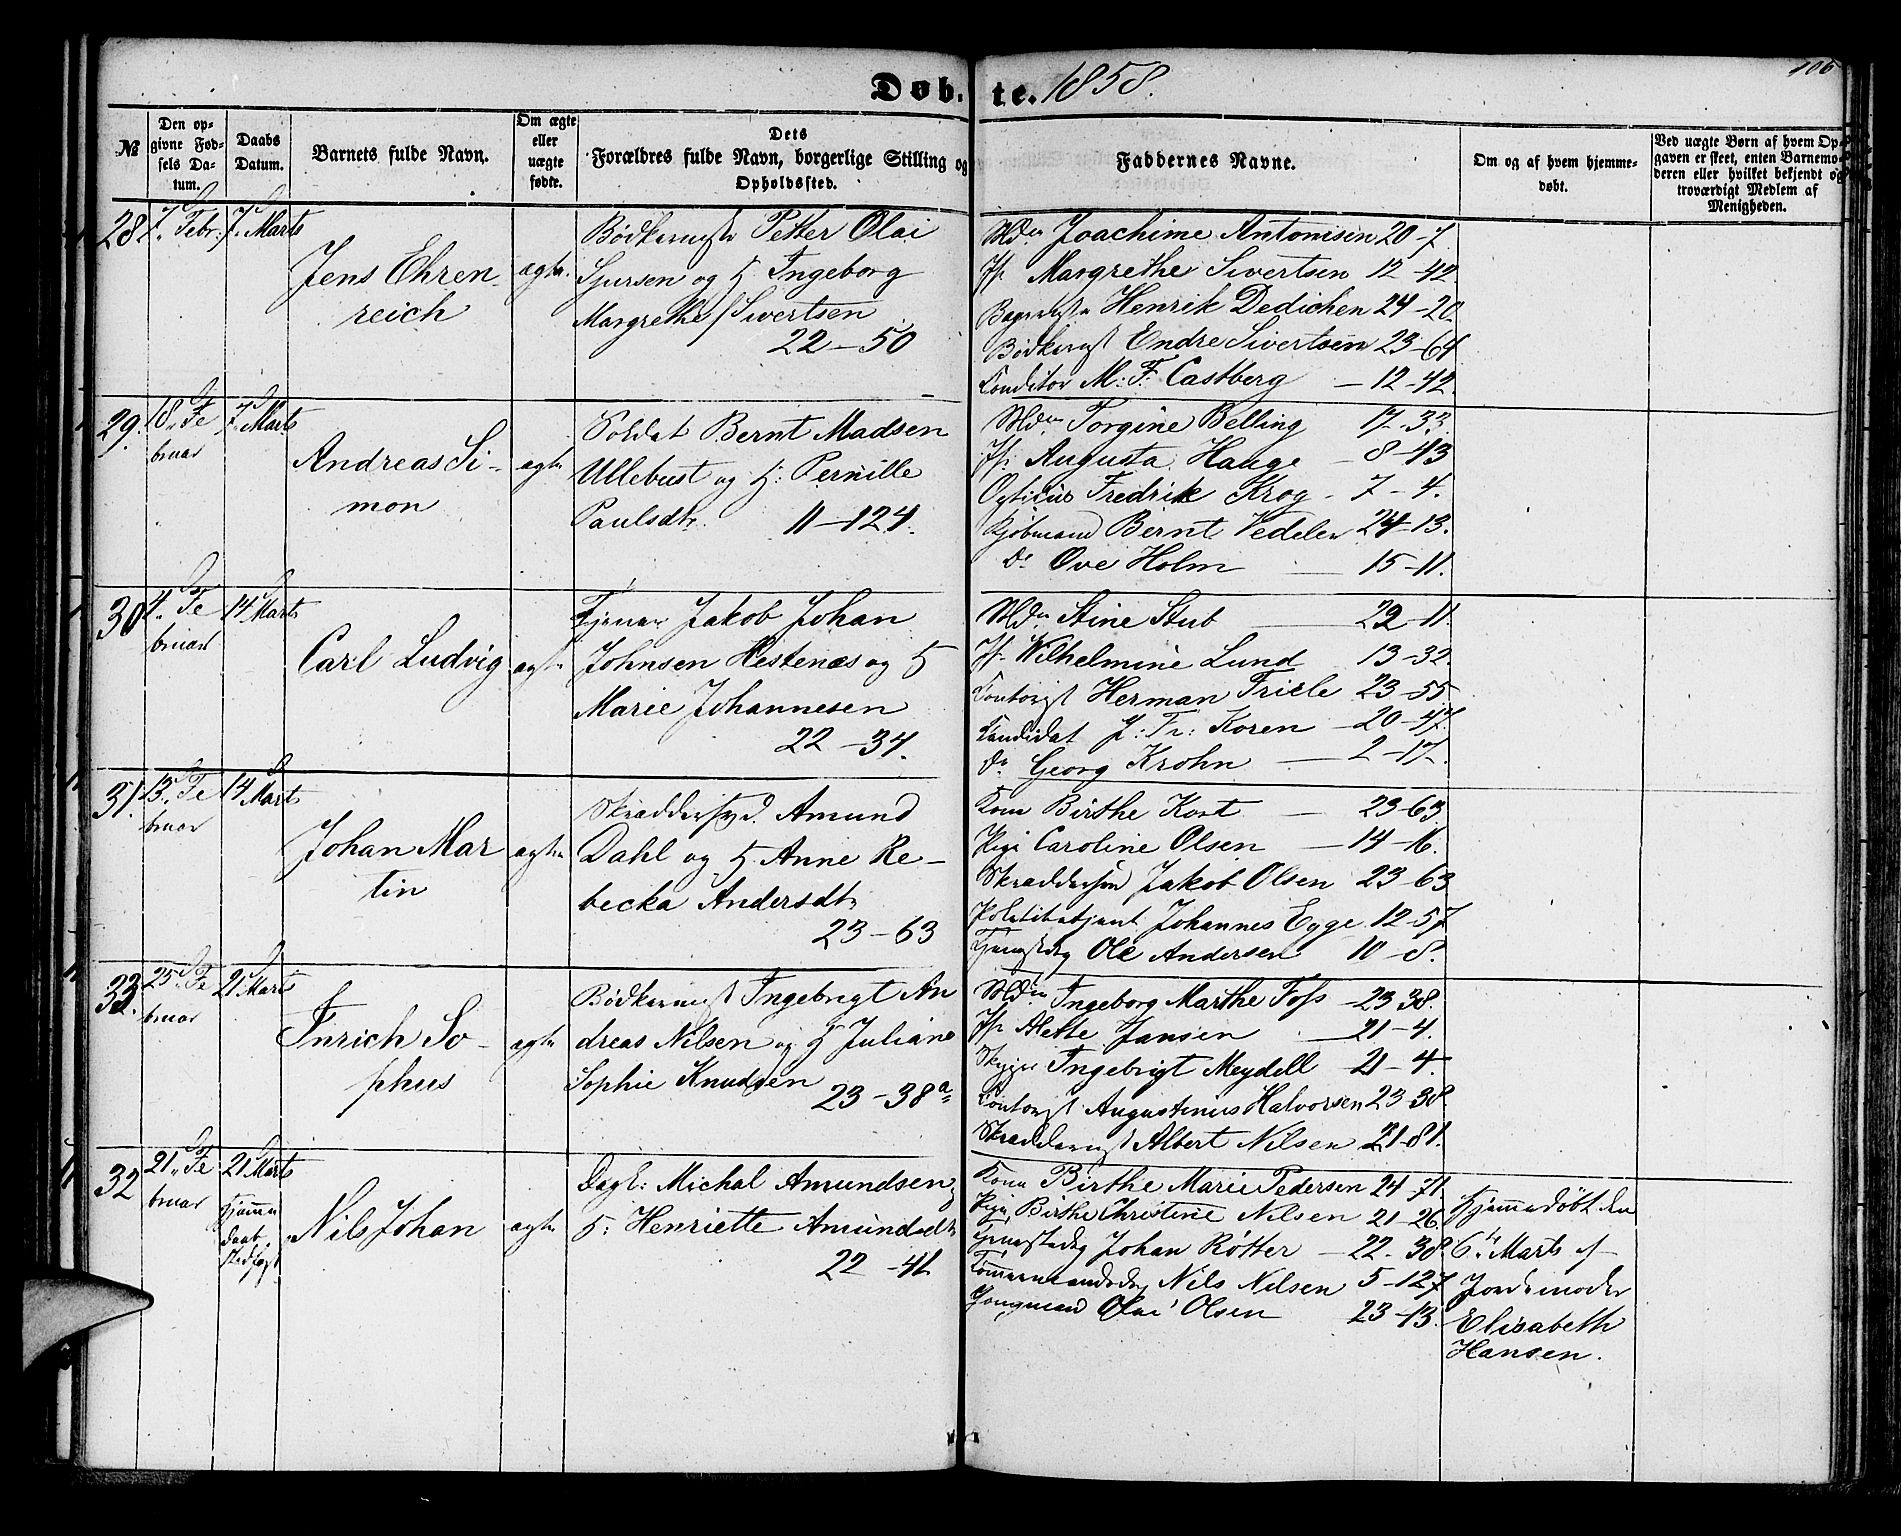 Døbte. 1858.
106
№
Den opgivne Fødsels Datum.
Daabs Datum.
Barnets fulde Navn.
Om ægte eller uægte fødte.
Dets Forældres fulde Navn, borgerlige Stilling og Opholdssted.
Faddernes Navne.
Om og af hvem hjemmedøbt.
Ved uægte Børn af hvem Opgaven er skeet, enten Barnemoderen eller hvilket bekjendt og troværdigt Medlem af Menigheden.
28. 7de Febr. 7de Marts
Jens Ehren-
reich
ægte
Bødkermstr Petter Olai
Sjursen og H. Ingeborg
Margrethe Sivertsen
22-50
Mdm Joachime Antonisen 20-7.
Jfr Margrethe Sivertsen 12-42
Henrik Dedichen 24-20
Bødkermst Endre Sivertsen 23-64
Conditor M: F: Castberg - 12-42.
29. 18de Fe
bruar
7de Marts
Andreas Si-
mon
ægte
Soldat Bernt Madsen
Ullebust og H: Pernille
Paulsdtr. 11-124.
Mdm Torgine Belling 17-33.
Jfr. Augusta Hauge - 8-43
Opticus Fredrik Krog - 7-4.
Kjøbmand Bernt Vedeler 24-13.
do Ove Holm 15-11.
30 4de Fe
bruar
14 Marts
Carl Ludvig
ægte
Tjener Jakob Johan
Johnsen Hestenæs og H
Marie Johannesen
22-34.
Mdm Stine Stub 22-11.
Jfr Wilhelmine Lund 13-32.
Contorist Herman Friele 23-55
Candidat J: Fr: Koren - 20-47.
do Georg Krohn - 2-17.
31. 13de Fe
bruar
14 Marts
Johan Mar
tin
ægte
Skræddersvd. Amund
Dahl og H. Anne Re-
becka Andersdtr
23-63
Kone Birthe Kort - 23-63
Pige Caroline Olsen - 14-16.
Jakob Olsen 23-63
Politibetjent Johannes Egge 12-57
Ole Andersen 10-8.
33. 25de Fe
bruar
21 Marts
Inrich So-
phus
ægte
Bødkermst Ingebrigt An
dreas Nilsen og H Juliane
Sophie Knudsen 23-38a
Mdm Ingeborg Marthe Foss - 23 38.
Jfr Alette Jansen - 21-4.
Ingebrigt Meydell - 21-4.
Contorist Augustinius Halvorsen 23-38
Skræddermst Albert Nilsen 21-81.
32 21de Fe
bruar
21 Marts
hjemme
daab
stadfæst
Nils Johan
ægte
Dagl: Michal Amundsen
H: Henriette Amundsdtr
22-41
Kone Birthe Marie Pedersen 24-71.
Pige Birthe Christine Nilsen 21-26
Johan Røtter - 22-38.
Nils Nilsen 5-127
Olai Olsen 23-13.
Hjemmedøbt den
6te Marts af
Jordemoder
Elisabeth
Hansen.